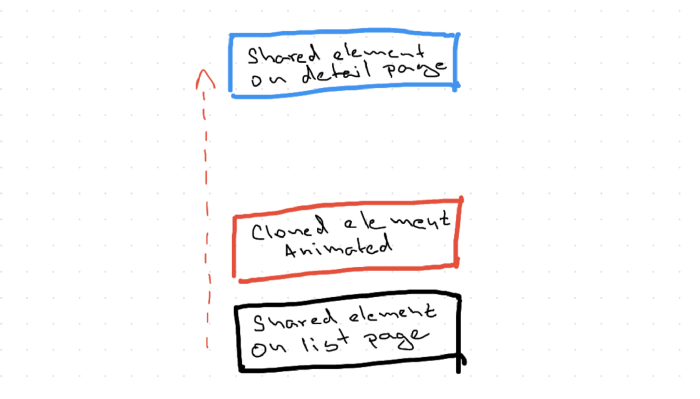 Shared element
on detail page
Cloned element
Animated
Shared element
On list page